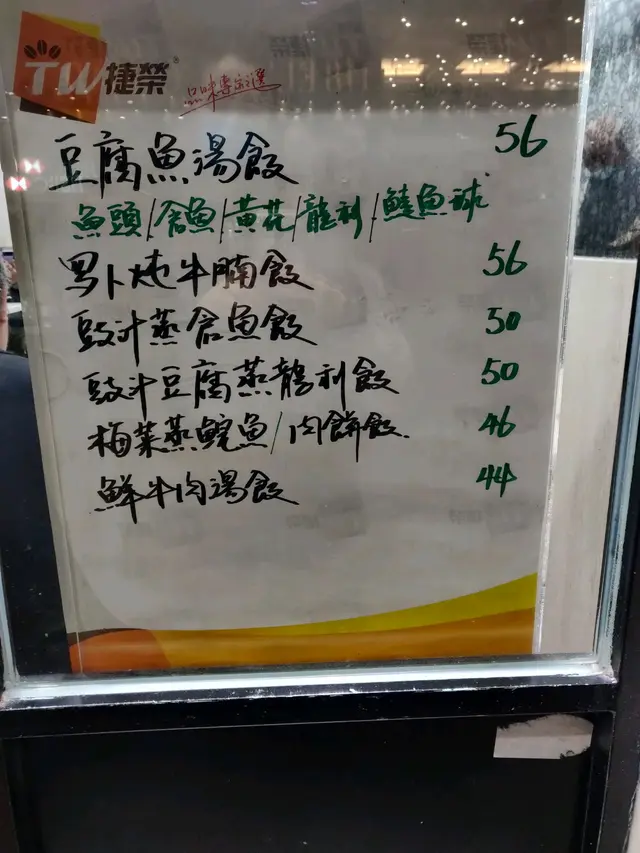 TW捷榮®
品味專家之選
豆腐魚湯飯 56
魚頭/倉魚/黃花/龍利/鯪魚球
罗卜炖牛腩飯 56
豉汁蒸倉魚飯 50
豉汁豆腐蒸龍利飯 50
梅菜蒸鯇魚/肉餅飯 46
鮮牛肉湯飯 44